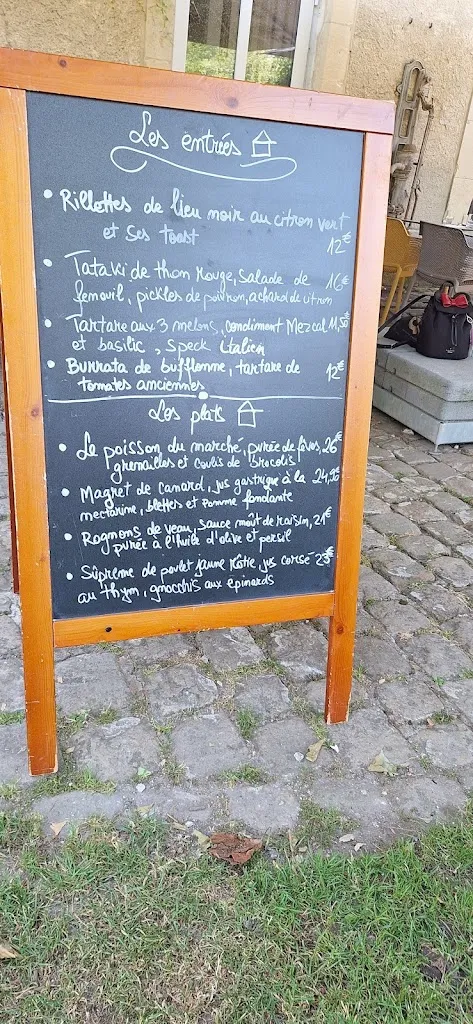 Les entrées
• Rillettes de lieu noir au citron vert
et ses toast 12€
• Tataki de thon rouge, salade de 16€
fenouil, pickles de poivron, achard de citron
• Tartare aux 3 melons, condiment Mezcal 11,50€
et basilic, speck italien
• Burrata de bufflonne, tartare de 12€
tomates anciennes
Les plats
• Le poisson du marché, purée de fèves, 26€
grenailles et coulis de brocolis
• Magret de canard, jus gastrique à la 24,90€
nectarine, blettes et pomme fondante
• Rognons de veau, sauce moût de raisin, 21€
purée à l'huile d'olive et persil
• Suprême de poulet jaune rôtie, jus corsé 23€
au thym, gnocchis aux épinards